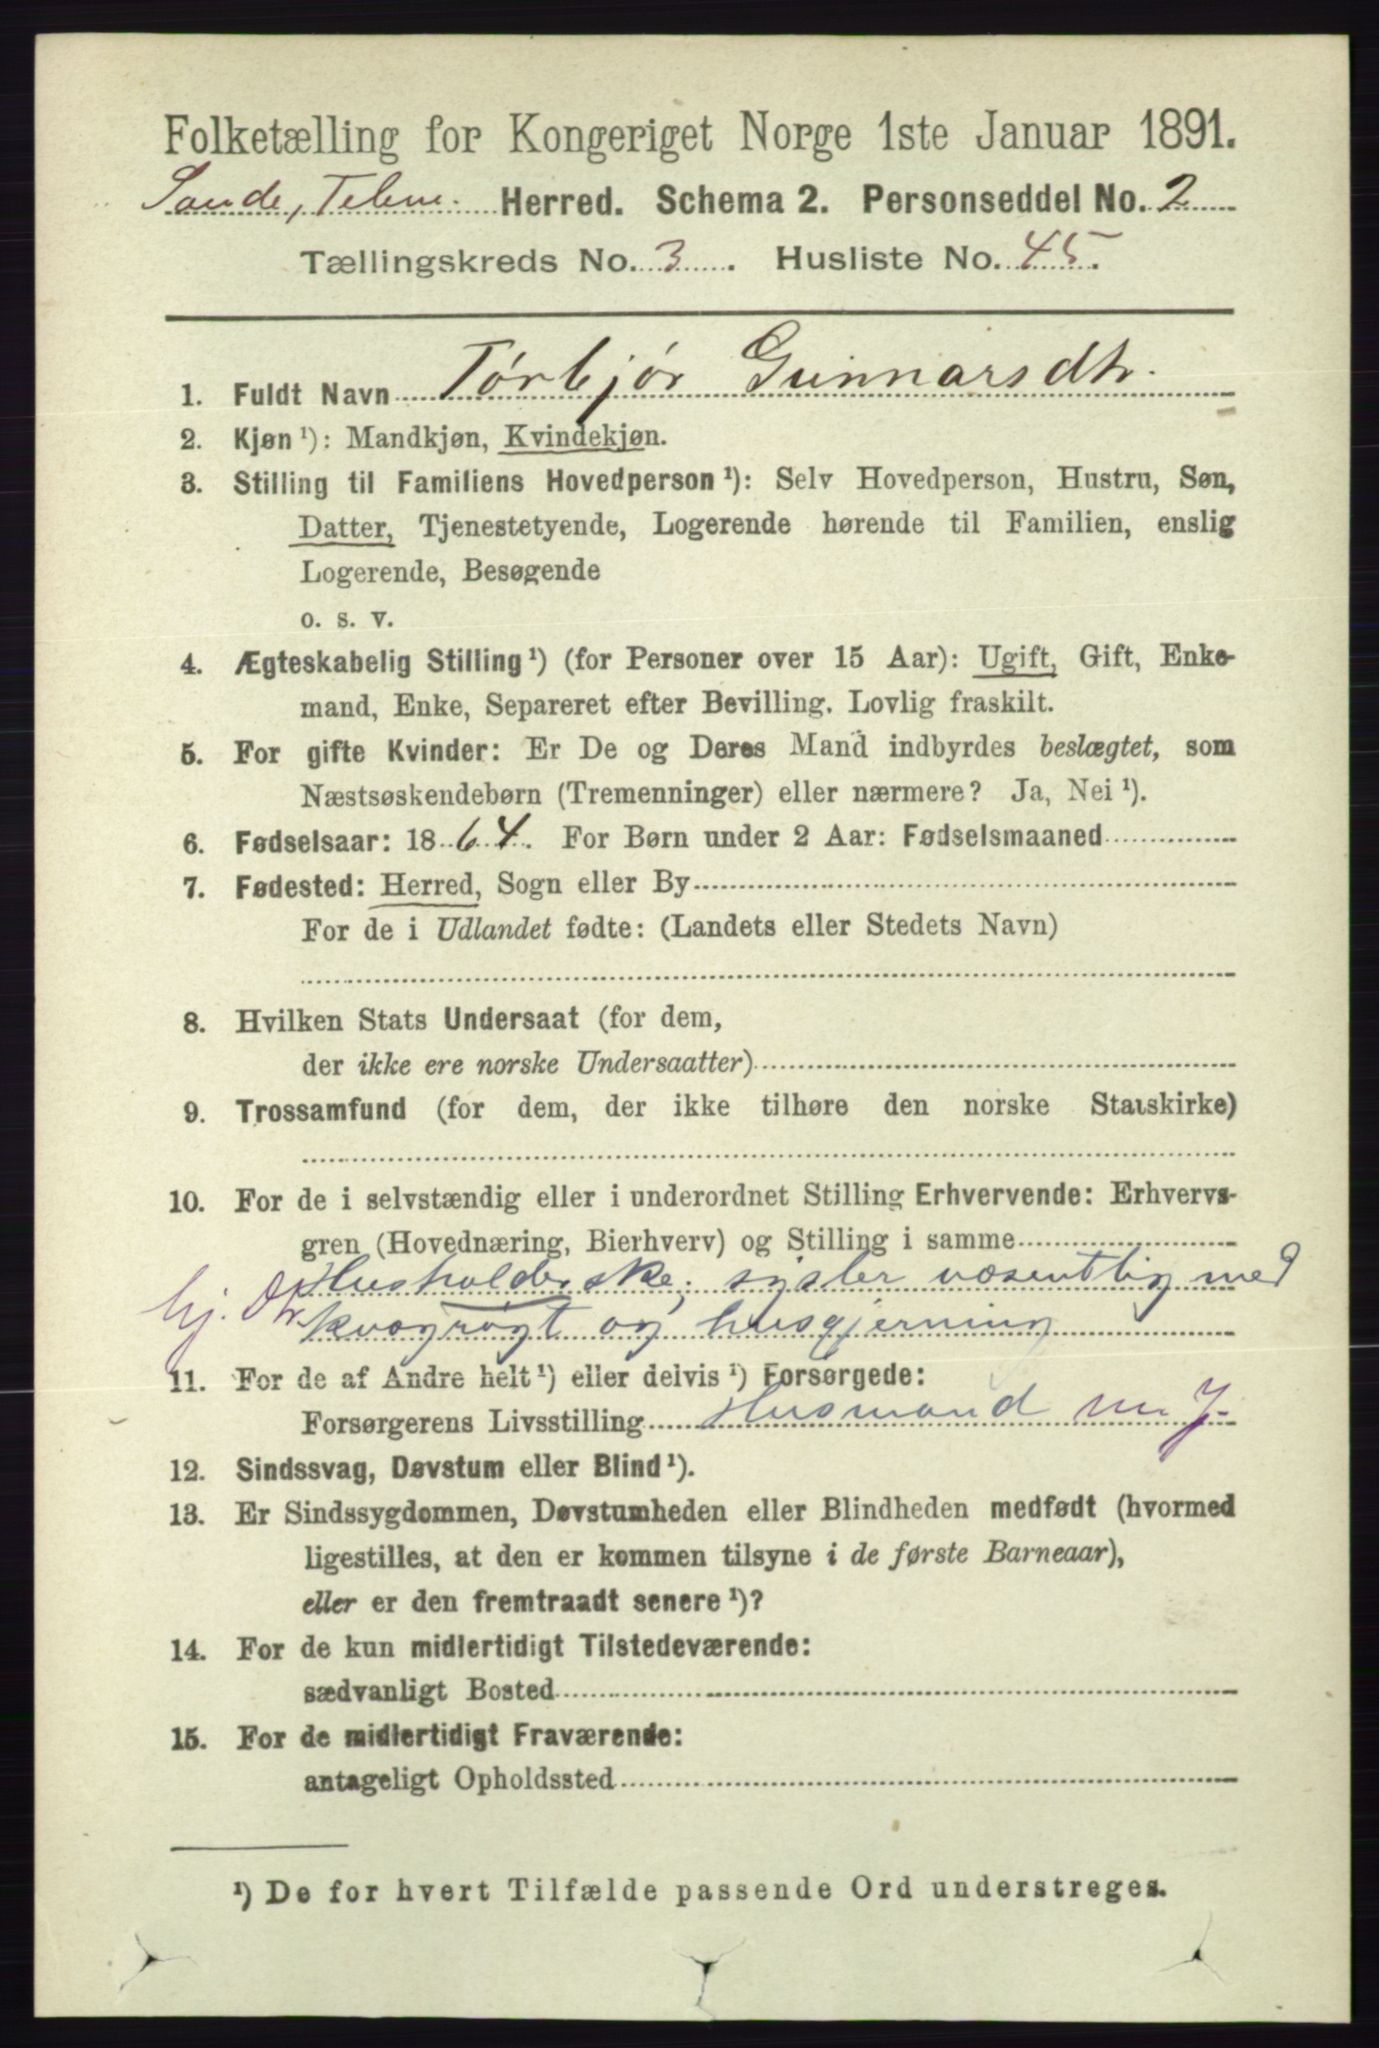 Folketælling for Kongeriget Norge 1ste Januar 1891.
Sande, Telem. Herred. Schema 2. Personseddel No. 2
Tællingskreds No. 3. Husliste No. 45.
1. Fuldt Navn Tørbjør Gunnarsdtr.
2. Kjøn ¹): Mandkjøn, Kvindekjøn.
3. Stilling til Familiens Hovedperson ¹): Selv Hovedperson, Hustru, Søn,
Datter, Tjenestetyende, Logerende hørende til Familien, enslig
Logerende, Besøgende
o. s. v.
4. Ægteskabelig Stilling ¹) (for Personer over 15 Aar): Ugift, Gift, Enke-
mand, Enke, Separeret efter Bevilling. Lovlig fraskilt.
5. For gifte Kvinder: Er De og Deres Mand indbyrdes beslægtet, som
Næstsøskendebørn (Tremenninger) eller nærmere? Ja, Nei ¹).
6. Fødselsaar: 1864. For Børn under 2 Aar: Fødselsmaaned
7. Fødested: Herred, Sogn eller By
For de i Udlandet fødte: (Landets eller Stedets Navn)
8. Hvilken Stats Undersaat (for dem,
der ikke ere norske Undersaatter)
9. Trossamfund (for dem, der ikke tilhøre den norske Statskirke)
10. For de i selvstændig eller i underordnet Stilling Erhvervende: Erhvervs-
gren (Hovednæring, Bierhverv) og Stilling i samme
hj. Dtr. Husholderske; sysler væsentlig med
kvægrøgt og husgjerning
11. For de af Andre helt ¹) eller delvis ¹) Forsørgede:
Forsørgerens Livsstilling Husmand m. J.
12. Sindssvag, Døvstum eller Blind ¹).
13. Er Sindssygdommen, Døvstumheden eller Blindheden medfødt (hvormed
ligestilles, at den er kommen tilsyne i de første Barneaar),
eller er den fremtraadt senere ¹)?
14. For de kun midlertidigt Tilstedeværende:
sædvanligt Bosted
15. For de midlertidigt Fraværende:
antageligt Opholdssted
¹) De for hvert Tilfælde passende Ord understreges.